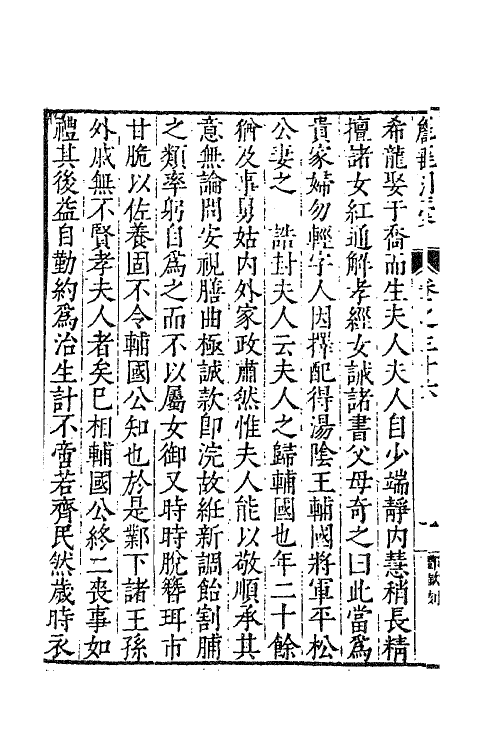 卷之三十六
希龍娶于喬而生夫人夫人自少端靜内慧稍長精
擅諸女紅通解孝經女誡諸書父母奇之曰此當爲
貴家婦勿輕字人因擇配得湯陰王輔國將軍平松
公妻之 誥封夫人云夫人之歸輔國也年二十餘
猶及事舅姑内外家政肅然惟夫人能以敬順承其
意無論問安視膳曲極誠款卽浣故紝新調飴割脯
之類率躬自爲之而不以屬女御又時時脫簪珥市
甘脆以佐養固不令輔國公知也於是鄴下諸王孫
外戚無不賢孝夫人者矣已相輔國公終二喪事如
禮其後益自勤約爲治生計不啻若齊民然歲時衣